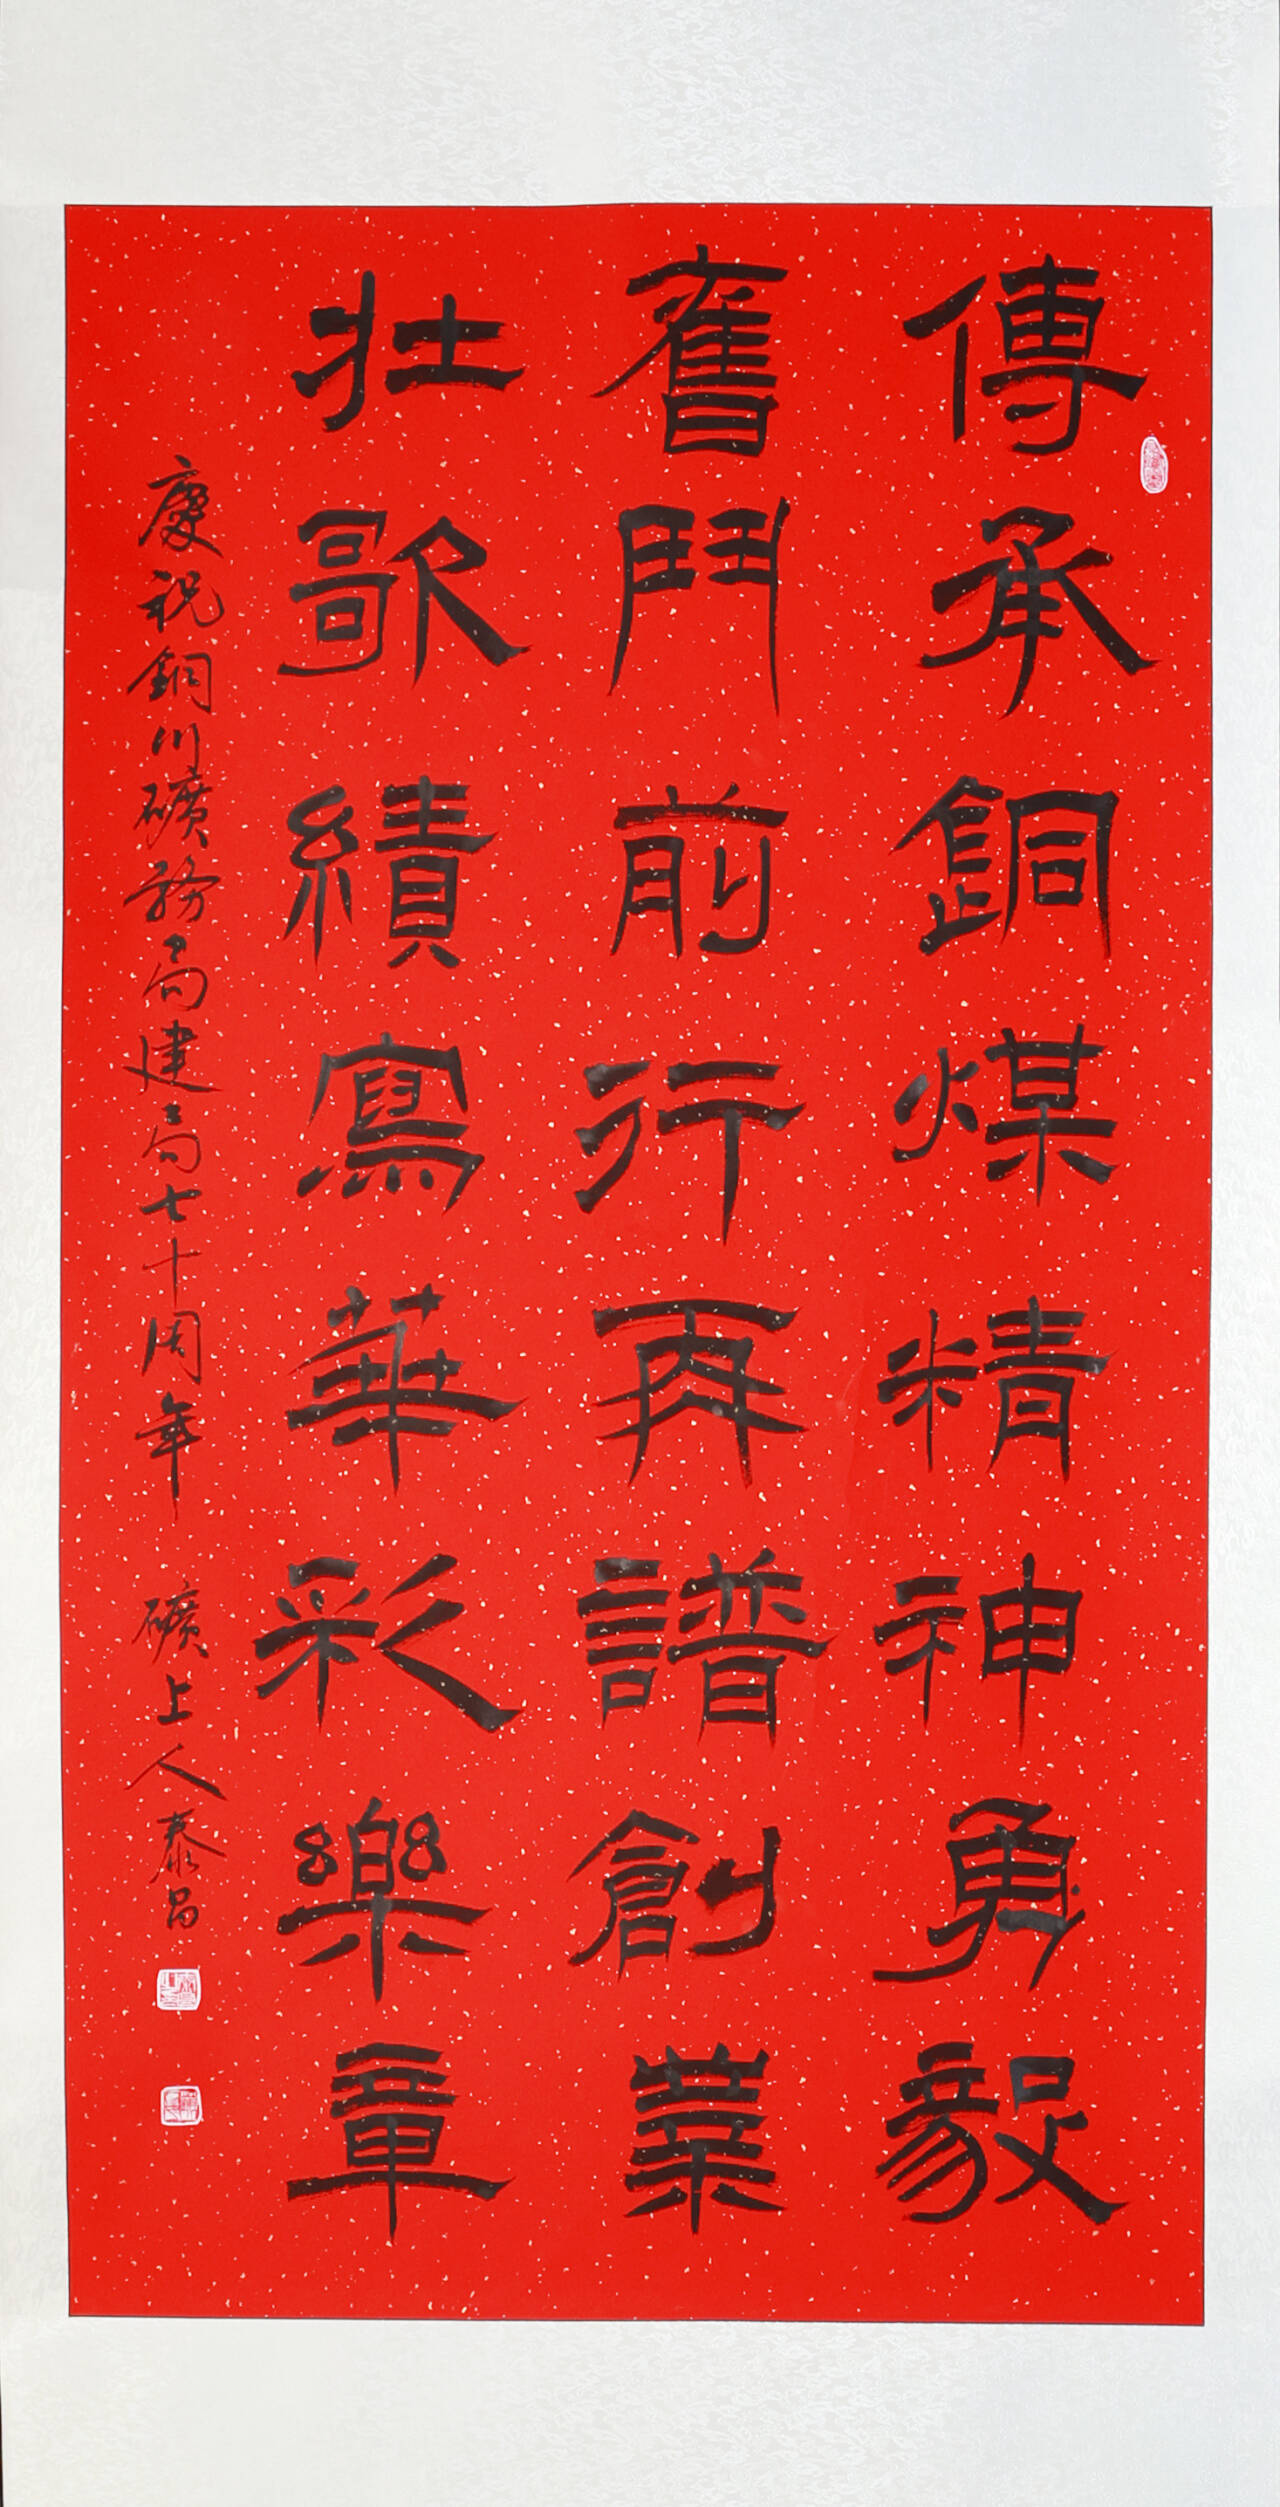 傳承銅煤精神勇毅
奮鬥前行再譜創業
壯歌績寫華彩樂章
慶祝銅川礦務局建局七十周年 礦上人泰昌